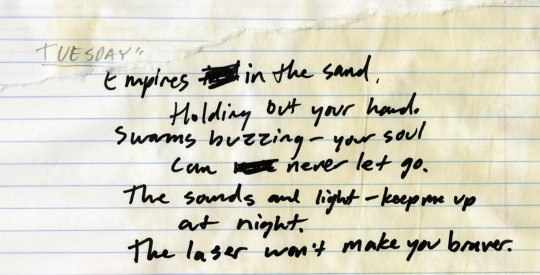 TUESDAY"
Empires in the sand,
Holding out your hand.
Swarms buzzing – your soul
Can never let go.
The sounds and light – keep me up
at night.
The laser won't make you braver.